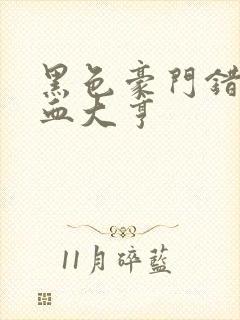 黑色豪門錯
血大亨
11月碎藍